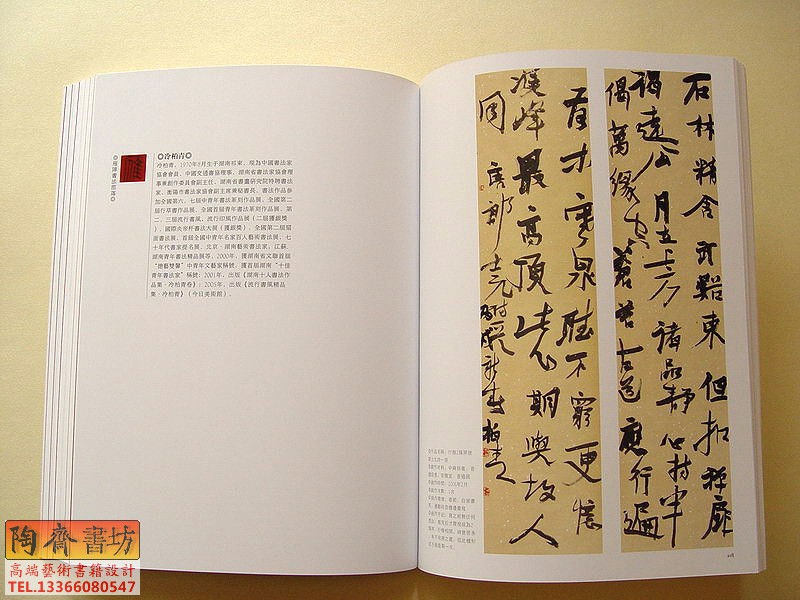 ◎冷柏青◎
冷柏青，1970年8月生于湖南祁東。現為中國書法家
協會會員、中國交通書協理事、湖南省書法家協會理
事兼創作委員會副主任、湖南省書畫研究院特聘書法
家、衡陽市書法家協會副主席兼秘書長。書法作品參
加全國第六、七屆中青年書法篆刻作品展、全國第二
屆行草書作品展、全國首屆青年書法篆刻作品展、第
二、三屆流行書風、流行印風作品展（二屆獲銀獎
）、國際炎帝杯書法大展（獲銀獎）、全國第二屆扇
面書法展、首屆全國中青年名家百人藝術書法展、七
十年代書家提名展、北京·湖南藝術書法家、江蘇、
湖南青年書法精品展等。2000年，獲湖南省文聯首屆
“德藝雙馨”中青年文藝家稱號，獲首屆湖南“十佳
青年書法家”稱號；2001年，出版《湖南十人書法作
品集·冷柏青卷》；2005年，出版《流行書風精品
集·冷柏青》（今日美術館）。
石林精舍武谿東但扣禪扉
謁遠公月在上方諸品靜心持半
偈萬緣空蒼苔古道應行遍
落木寒泉聽不窮更憶
雙峰最高頂此心期與故人
同 唐郎士元詩
陶齋書坊
高端藝術書籍設計
TEL.13366080547